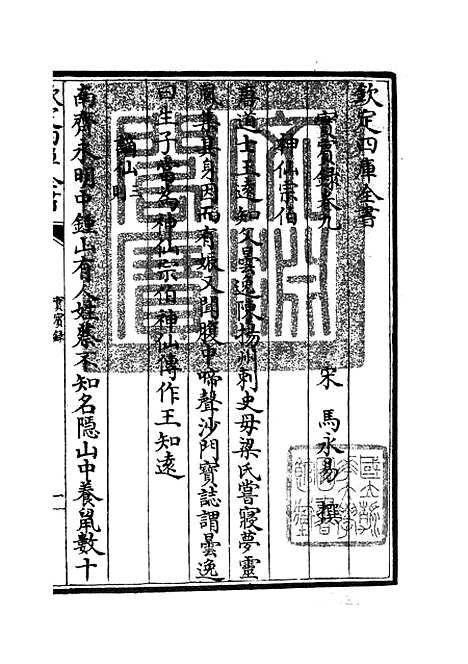 欽定四庫全書
實賓錄卷九
宋 馬永易 撰
神仙宗伯
唐道士王遠知父曇逸陳揚州刺史母梁氏嘗寢夢靈
鳳集其身因而有娠又聞腹中啼聲沙門寶誌謂曇逸
曰生子當為神仙宗伯神仙傳作王知遠
謫仙三則
南齊永明中鍾山有人姓蔡不知名隠山中養鼠數十
欽定四庫全書
實賓錄
一